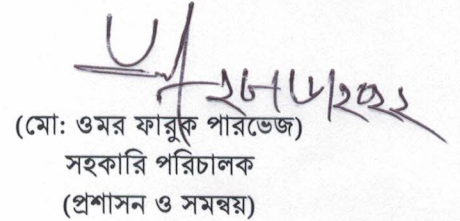 ২৮/৮/২০২২
(মো: ওমর ফারুক পারভেজ)
সহকারি পরিচালক
(প্রশাসন ও সমন্বয়)